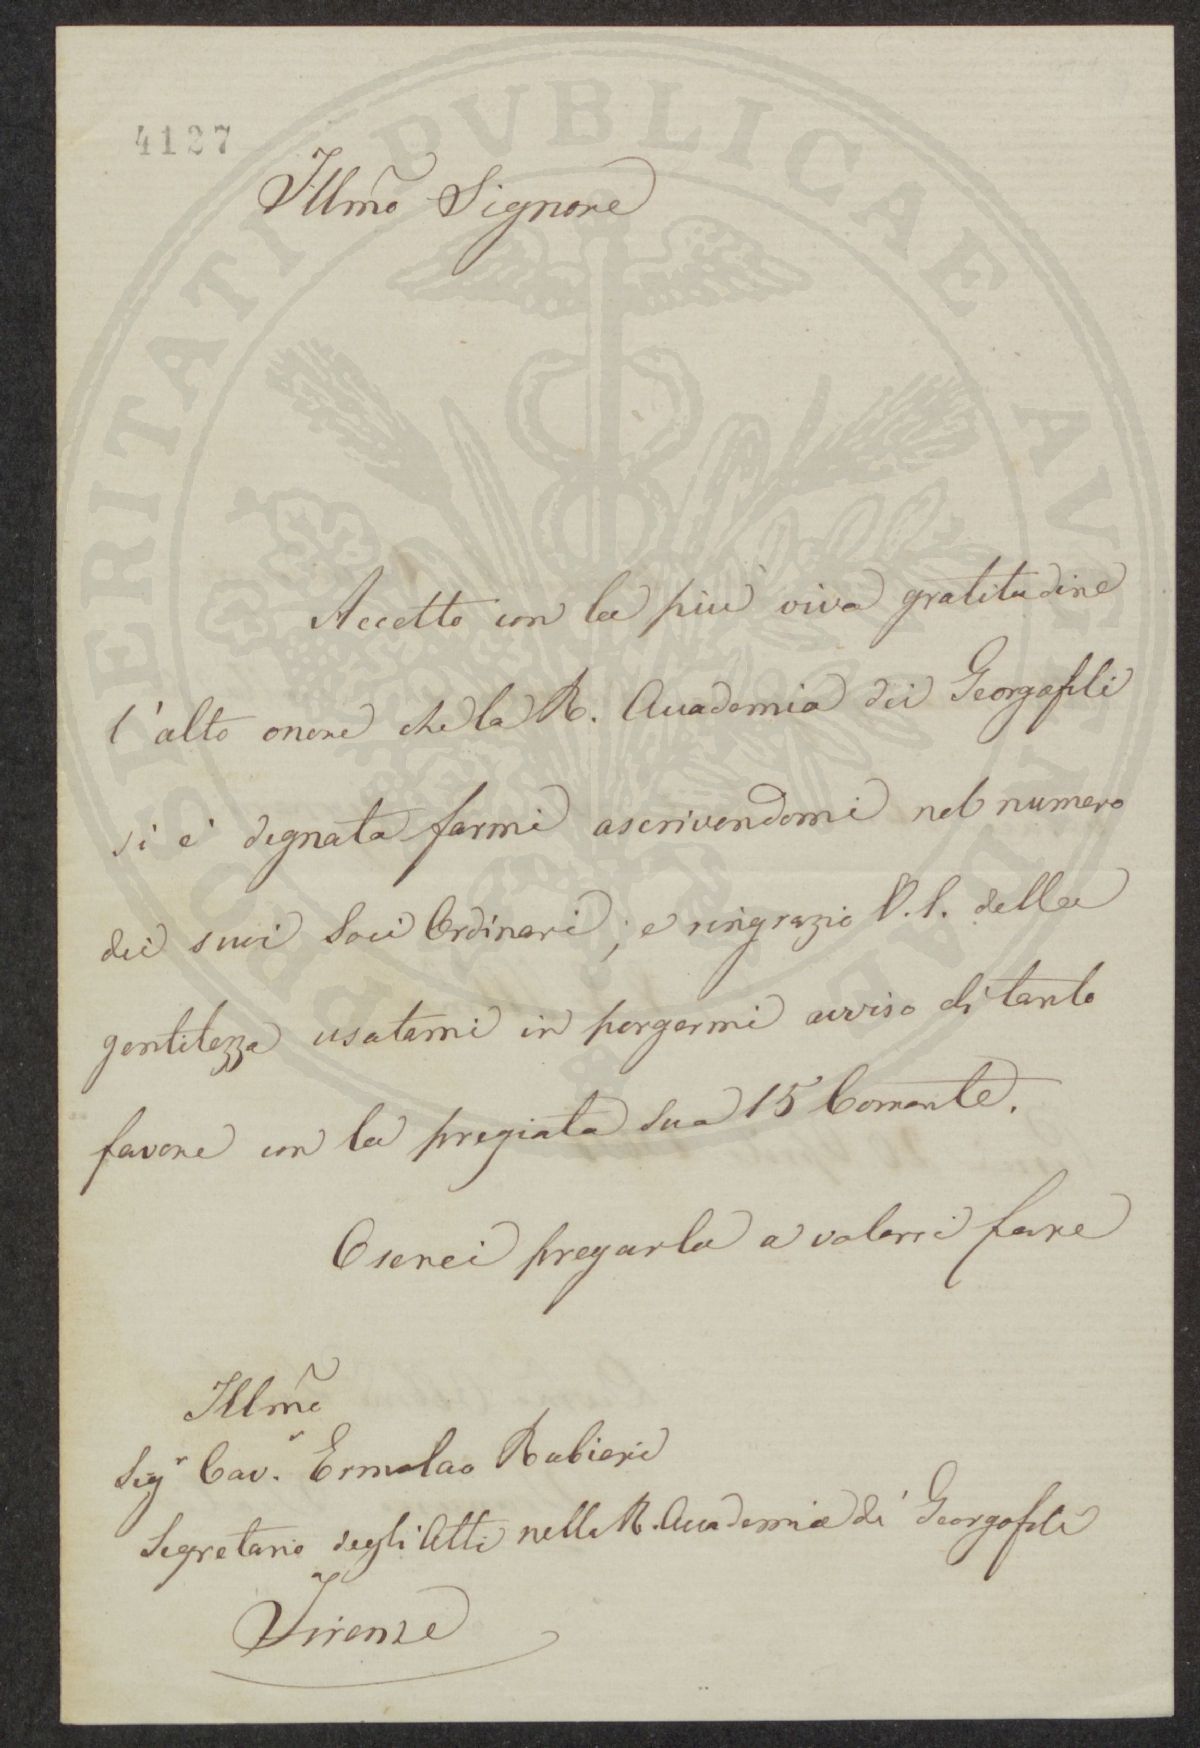 4127
Illmo Signore
Accetto con la più viva gratitudine
l'alto onore che la R. Accademia dei Georgofili
si è degnata farmi ascrivendomi nel numero
dei suoi Soci Ordinari; e ringrazio V. S. della
gentilezza usatami in porgermi avviso di tanto
favore con la pregiata sua 15 Corrente.
Oserei pregarla a volersi fare
Illmo
Sigr Cavr. Ermolao Rubieri
Segretario degli Atti nella R. Accademia dei Georgofili
Firenze
PROSPERITATI PVBLICAE AVGENDAE